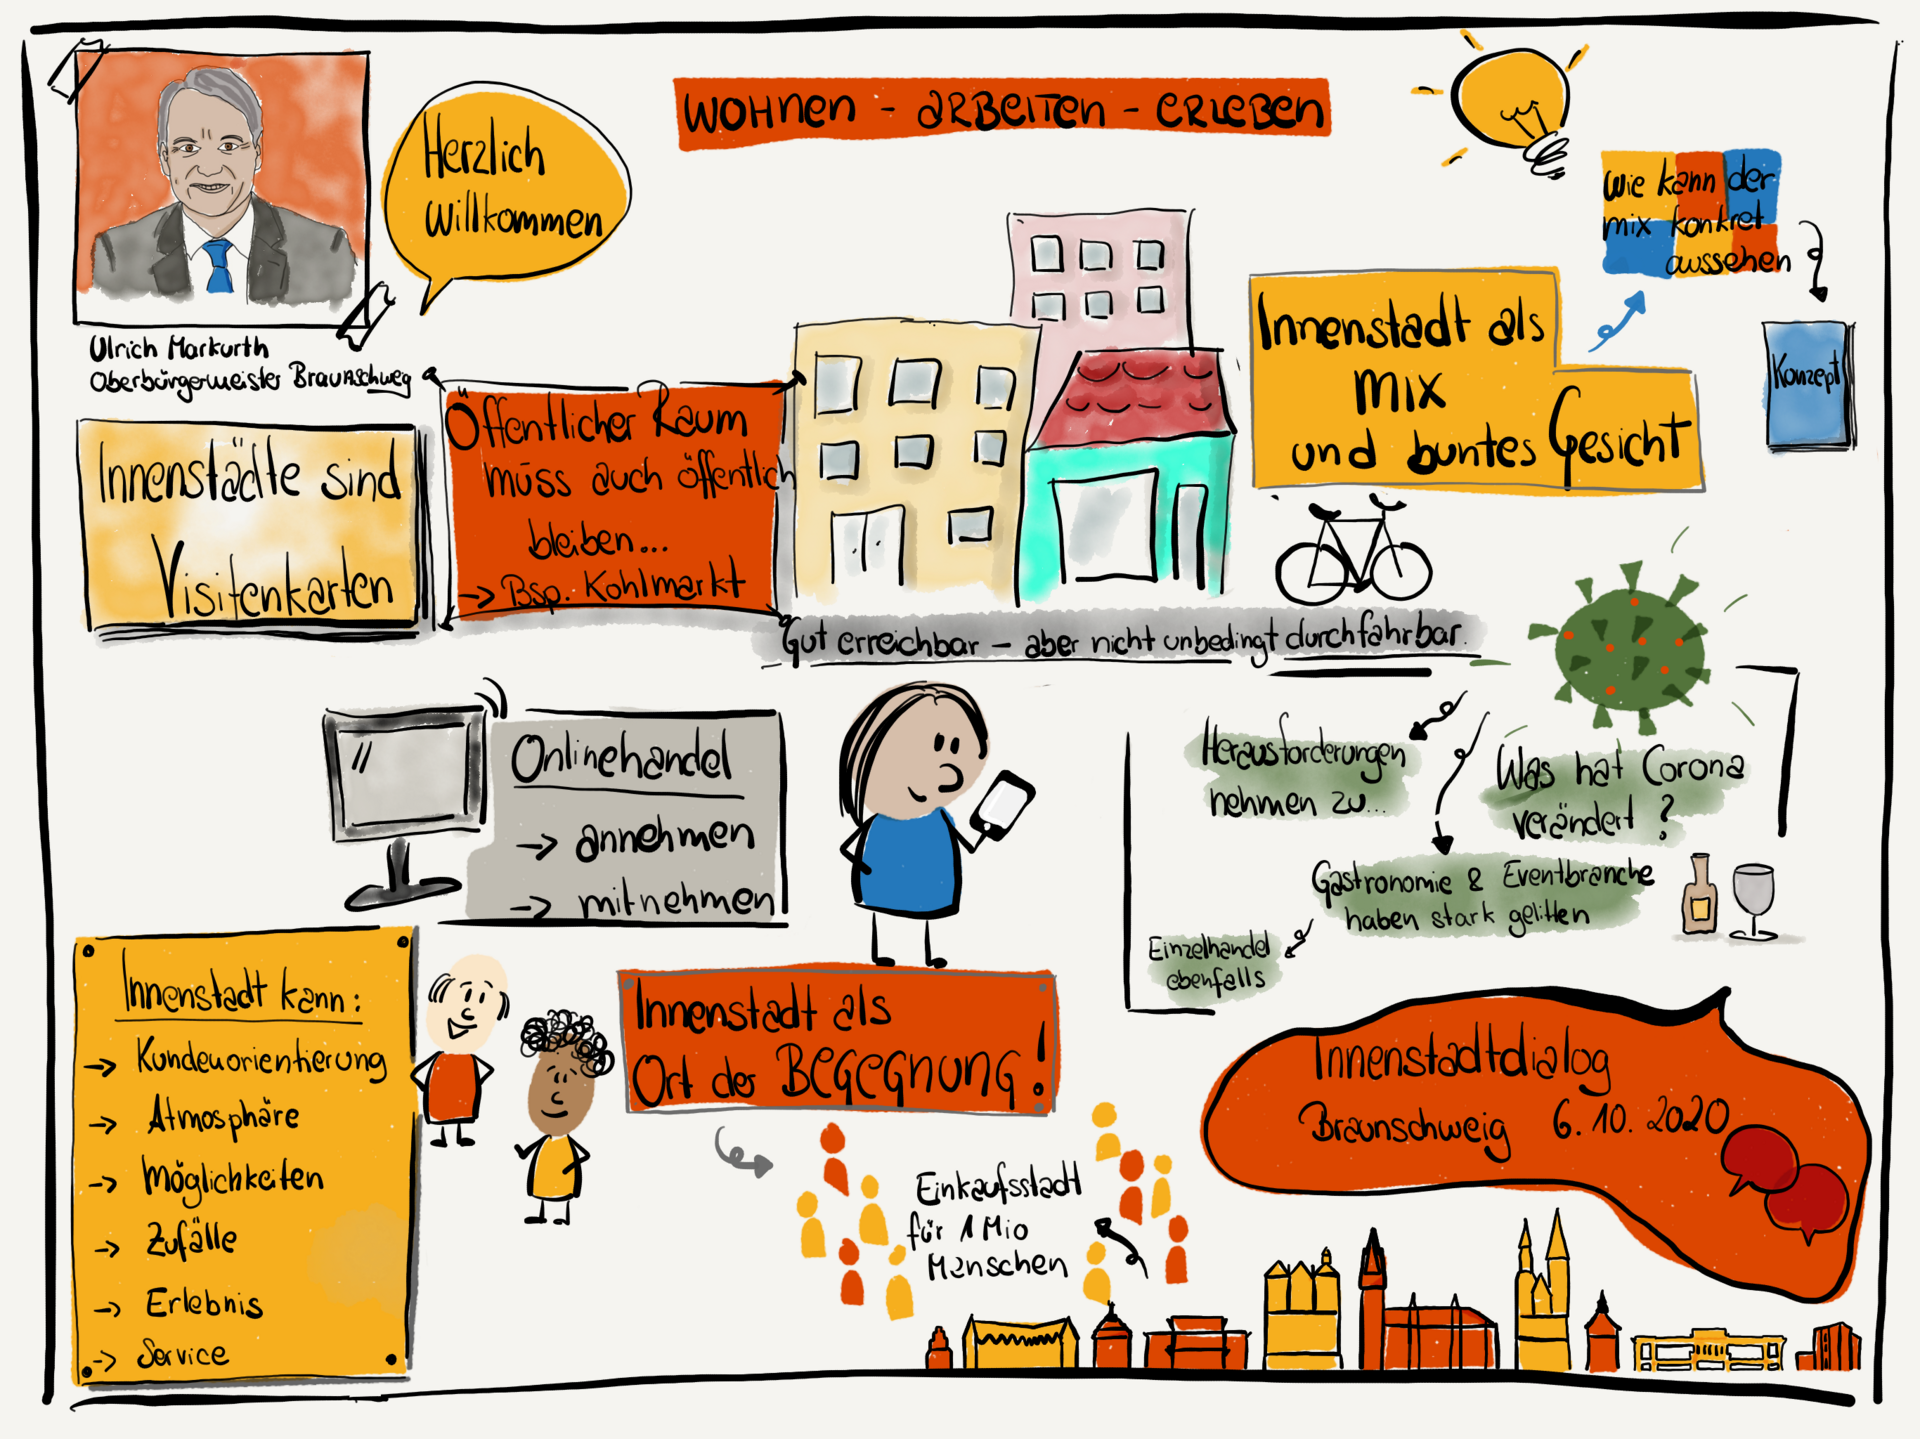 Herzlich
Willkommen
WOHNEN - ARBEITEN - ERLEBEN
Wie kann der
mix konkret
aussehen
Konzept
Ulrich Markurth
Oberbürgermeister Braunschweig
Innenstädte sind
Visitenkarten
Öffentlicher Raum
muss auch öffentlich
bleiben...
→ Bsp. Kohlmarkt
Innenstadt als
MIX
und buntes Gesicht
Gut erreichbar – aber nicht unbedingt durchfahrbar.
Onlinehandel
→ annehmen
→ mitnehmen
Herausforderungen
nehmen zu...
Was hat Corona
verändert?
Gastronomie & Eventbranche
haben stark gelitten
Einzelhandel
ebenfalls
Innenstadt kann:
→ Kundenorientierung
→ Atmosphäre
→ Möglichkeiten
→ Zufälle
→ Erlebnis
→ Service
Innenstadt als
Ort der BEGEGNUNG!
Einkaufsstadt
für 1 Mio
Menschen
Innenstadtdialog
Braunschweig 6.10.2020